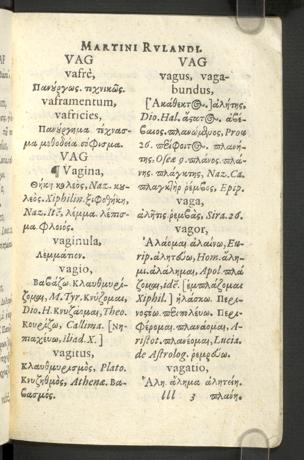 MARTINI RVLANDI.
VAG
vafrè,
Πανύργως. τεχνικῶς.
vaframentum,
vafricies,
Πανύργημα τέχνασ-
μα μεθοδεία σόφισμα.
VAG
¶ Vagina,
Θήκη κολεὸς, Naz. κυ-
λεὸς. Xiphilin. ξιφοθήκη,
Naz. Itē, λέμμα. λέπισ-
μα. φλοιός.
vaginula,
Λεμμάτιον.
vagio,
Βαβάζω. Κλαυθμυρί-
ζομαι, M. Tyr. Κνύζομαι,
Dio. H. Κνυζάομαι, Theo.
Κουρίζω, Callima. [Νη-
πιαχεύω, Iliad. X.]
vagitus,
Κλαυθμυρισμὸς, Plato.
Κνυζηθμὸς, Athenæ. Βα-
βασμός.
VAG
vagus, vaga-
bundus,
[Ἀκάθεκτος.] ἀλήτης,
Dio. Hal. ἄστατος. ἀβέ-
βαιος. πλανώμενος, Prou
26. πλανή-
της. Oseæ 9. πλάνος. πλά-
νης. πλάγκτης, Naz. Ca.
ῥεμβὸς, Epip.
vaga,
ἀλῆτις ῥεμβὰς, Sira. 26.
vagor,
Ἀλάομαι ἀλαίνω, Eu-
rip. ἀλητεύω, Hom. ἀλη-
μι. ἀλάλημαι, Apol. πλά
ζομαι, idē. [ἐμπλάζομαι
Xiphil.] ἠλάσκω. Περι-
νοστῶ. περιπολεύω. Περι-
φέρομαι. πλανάομαι, A-
ristot. πλανέομαι, Lucia.
de Astrolog. ῥεμβεύω.
vagatio,
Ἄλη. ἄλημα ἀλητεία.
lll 3 πλάνη.